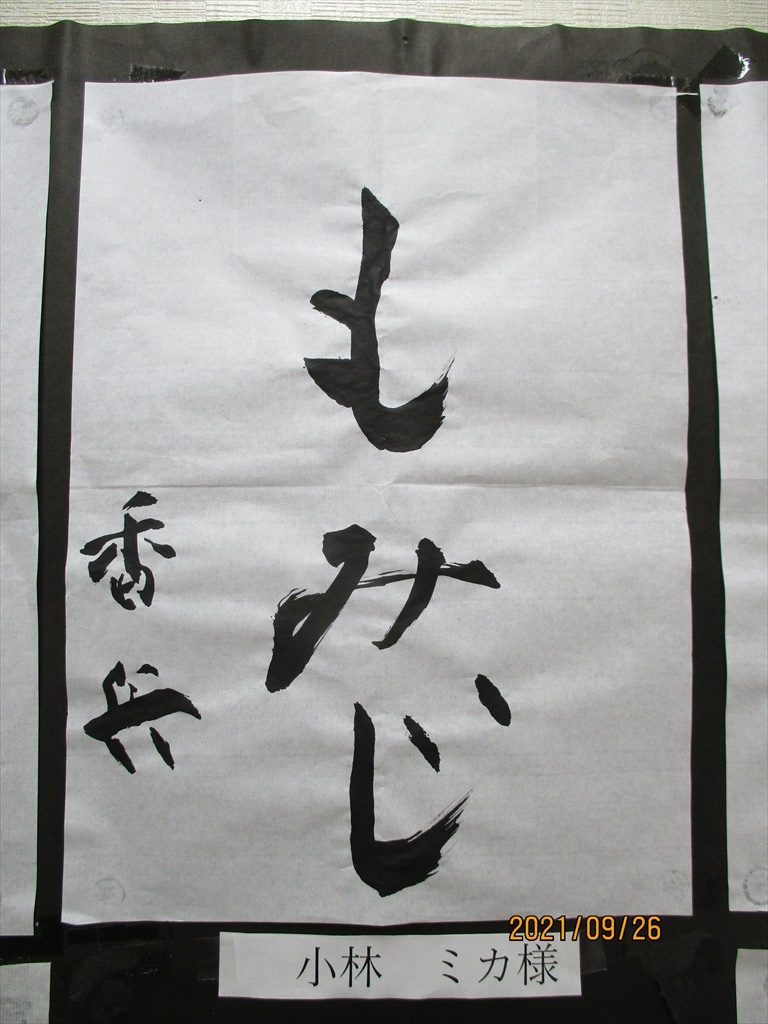 もみじ
香兵
2021/09/26
小林　ミカ様